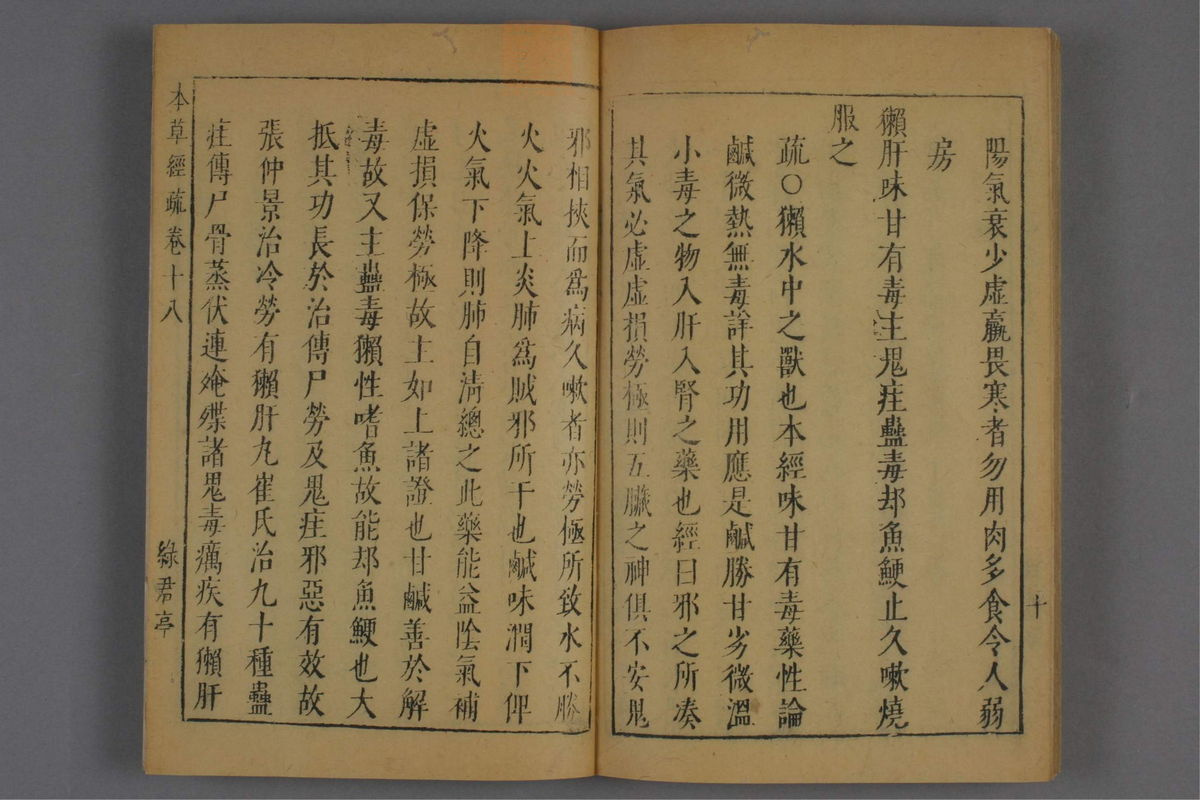 陽氣衰少虛羸畏寒者勿用肉多食令人弱
房
獺肝味甘有毒主鬼疰蠱毒却魚鯁止久嗽燒
服之
疏○獺水中之獸也本經味甘有毒藥性論
鹹微熱無毒詳其功用應是鹹勝甘劣微溫
小毒之物入肝入腎之藥也經曰邪之所凑
其氣必虛虛損勞極則五臟之神俱不安鬼
十
邪相挾而爲病久嗽者亦勞極所致水不勝
火火氣上炎肺爲賊邪所干也鹹味潤下俾
火氣下降則肺自清總之此藥能益陰氣補
虛損保勞極故主如上諸證也甘鹹善於解
毒故又主蠱毒獺性嗜魚故能却魚鯁也大
抵其功長於治傳尸勞及鬼疰邪惡有效故
張仲景治冷勞有獺肝丸崔氏治九十種蠱
疰傳尸骨蒸伏連殗殜諸鬼毒癘疾有獺肝
本草經疏卷十八
綠君亭